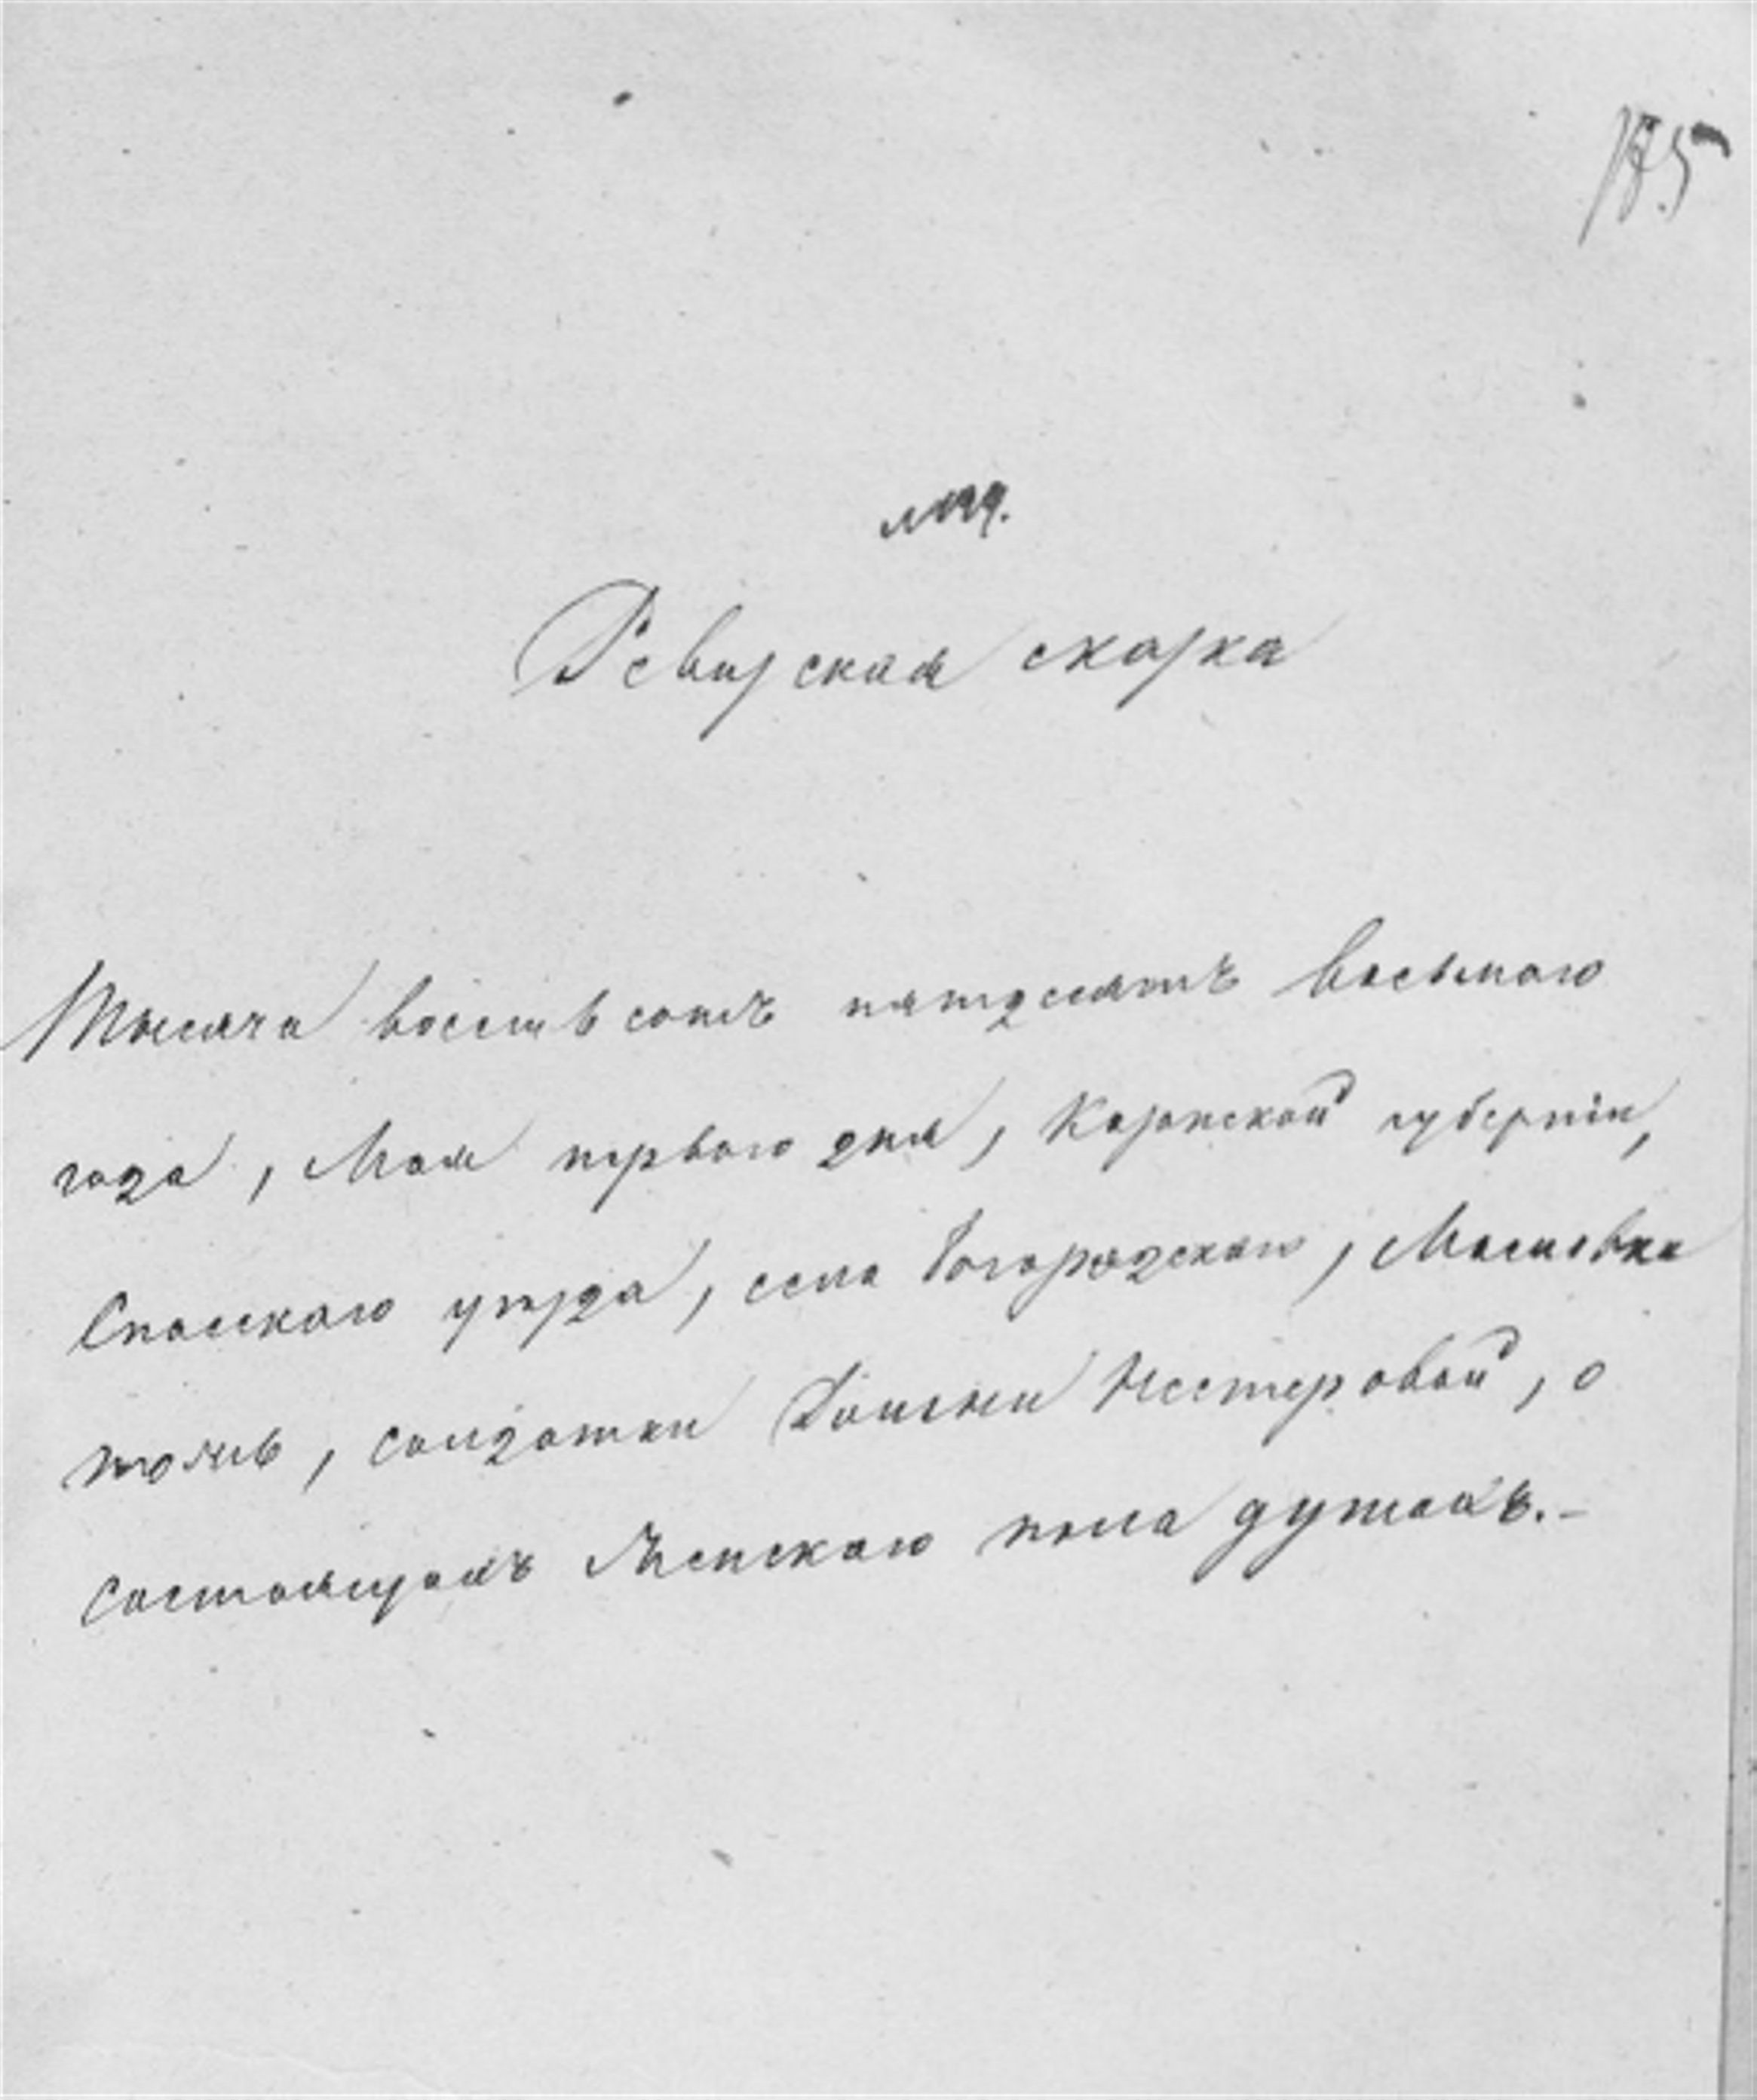 Ревизская сказка
Тысяча восемьсотъ пятдесятъ восьмаго
года, Мая перваго дня, Казанской губерніи,
Спасскаго уѣзда, села Богородскаго, Масловка
тожъ, солдатки Домны Нестеровой, о
состоящихъ женскаго пола душахъ.-